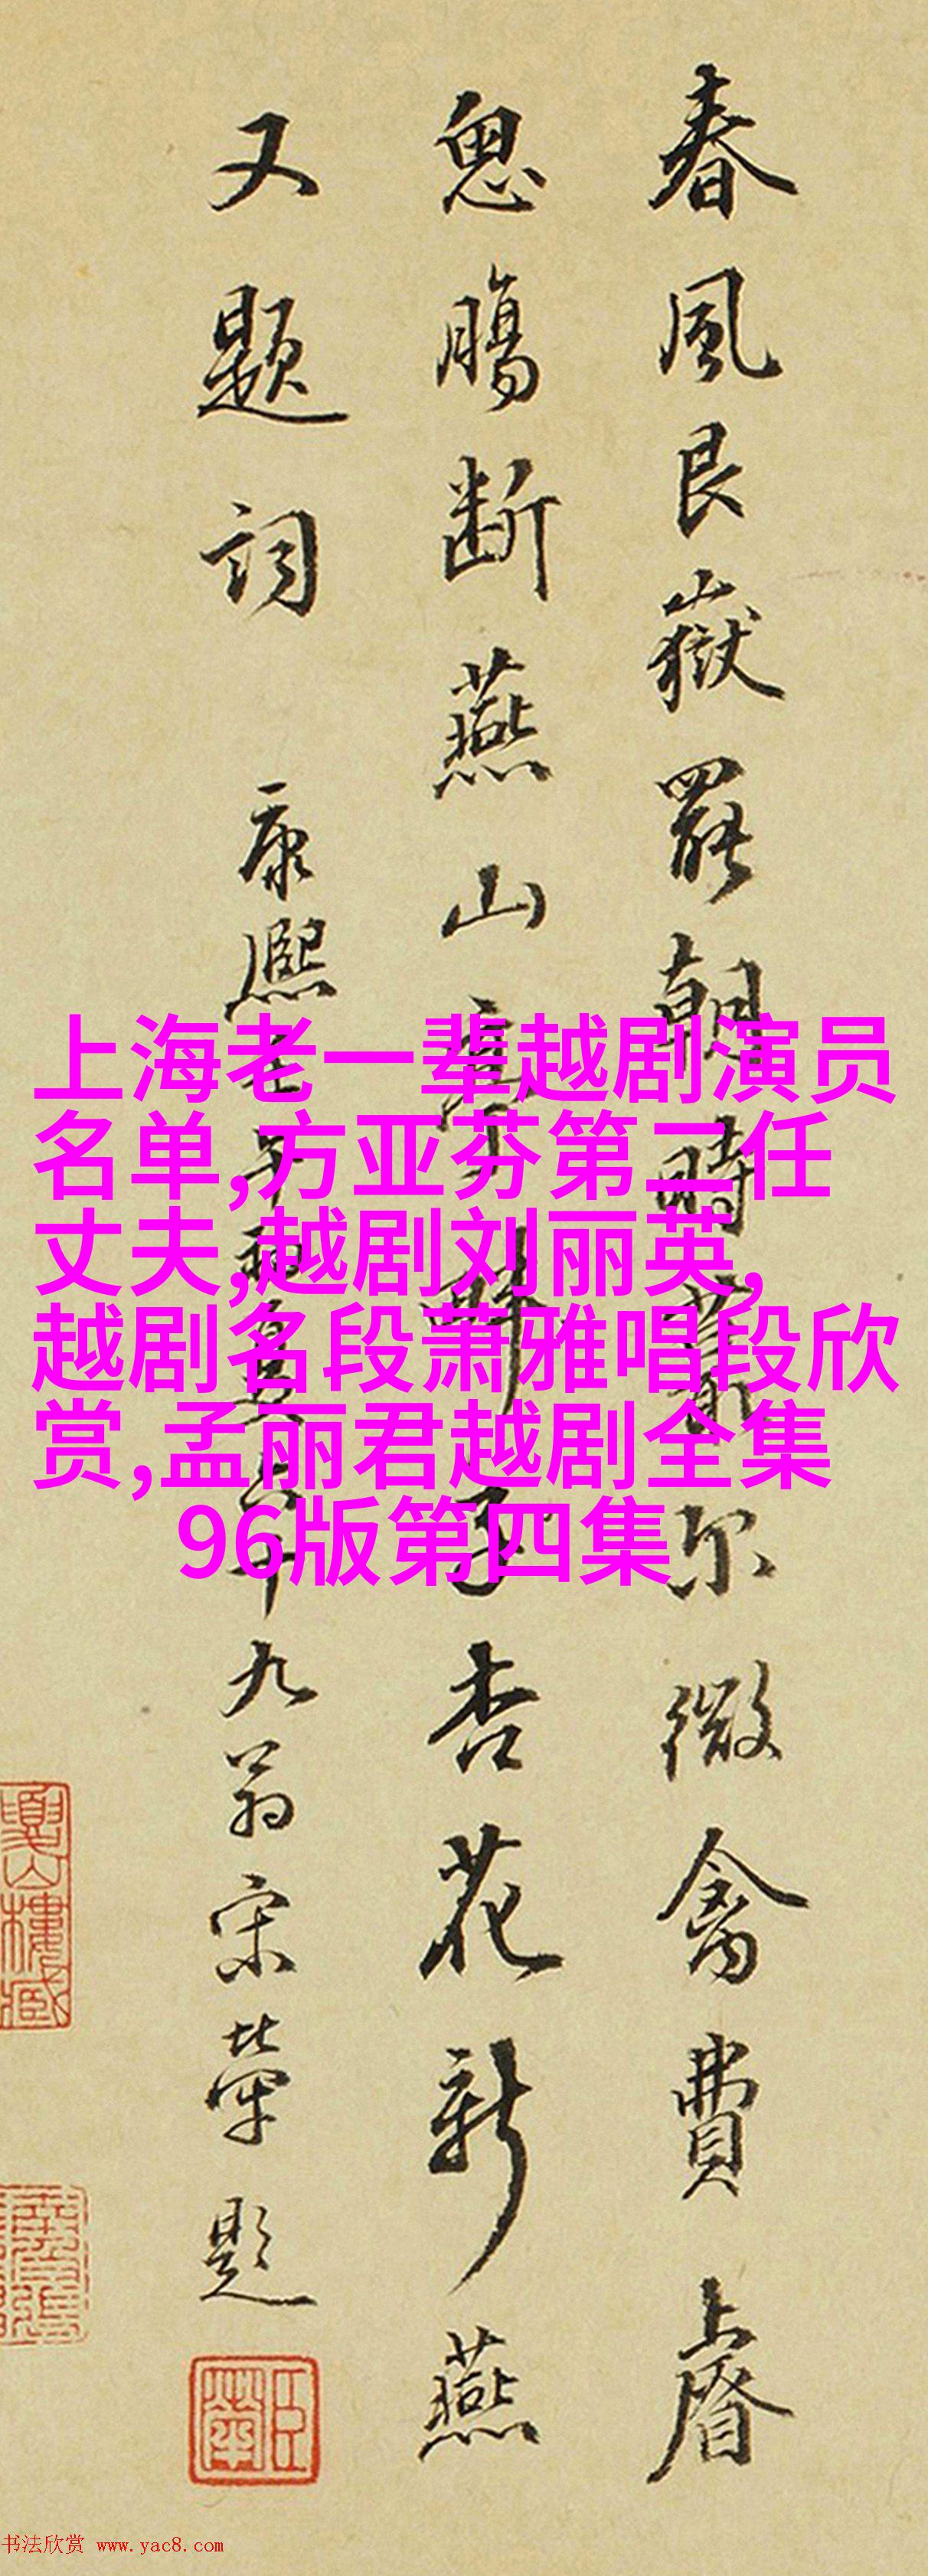 春風艮嶽罷朝時 尔微禽費上睿
思腸断燕山亭畔 杏花新燕
又題詞 康熙 午 九翁宋犖題
上海老一辈越剧演员
名单,方亚芬第二任
丈夫,越剧刘丽英,
越剧名段萧雅唱段欣
赏,孟丽君越剧全集
96版第四集
臣犖
书法欣赏 www.yac8.com